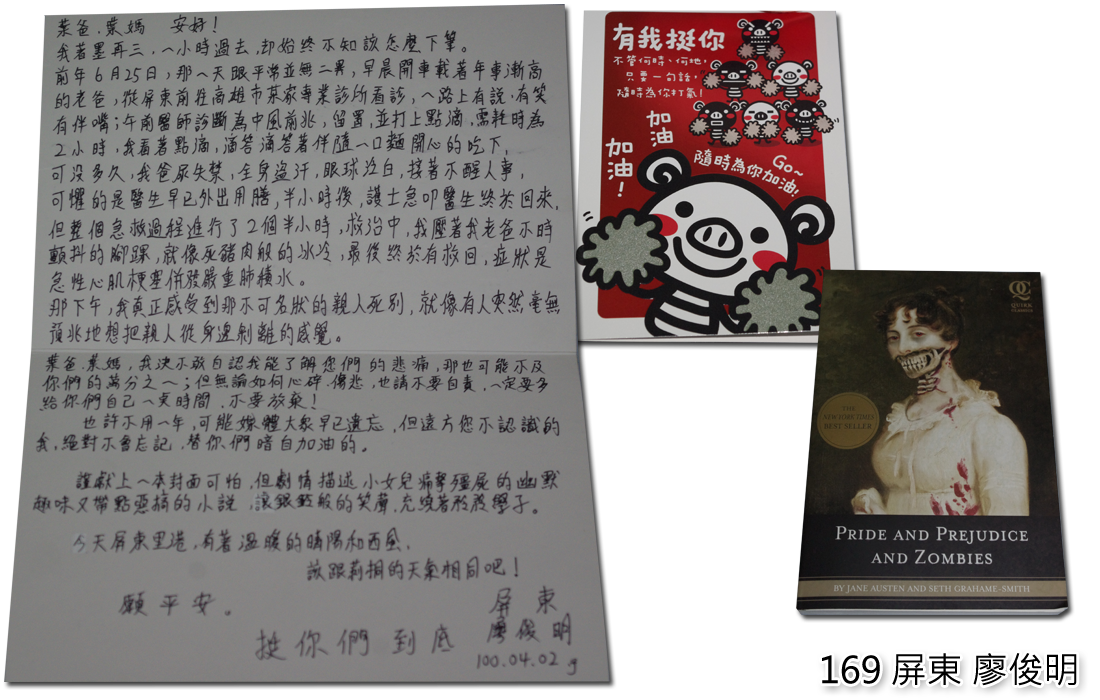 葉爸.葉媽 安好!
我著墨再三,一小時過去,却始終不知該怎麼下筆。
前年6月25日,那一天跟平常並無二異,早晨開車載著年事漸高
的老爸,從屏東前往高雄市葉家專業診所看診,一路上有說.有笑
有伴嘴;午前醫師診斷為中風前兆,留置,並打上點滴,需耗時為
2小時,我看著點滴,滴答滴答著伴隨一口麵開心的吃下,
可沒多久,我爸尿失禁,全身盜汗,眼球泛白,接著不醒人事,
可懼的是醫生早已外出用膳,半小時後,護士急叩醫生終於回來,
但整個急救過程進行了2個半小時,救治中,我壓著我老爸不時
顫抖的腳踝,就像死豬肉般的冰冷,最後終於有救回,症狀是
急性心肌梗塞併發嚴重肺積水。
那下午,我真正感受到那不可名狀的親人死別,就像有人突然毫無
預兆地想把親人從身邊剝離的感覺。
葉爸.葉媽,我決不敢自認我能了解您們的悲痛,那也可能不及
你們的萬分之一;但無論如何心碎.傷悲,也請不要自責,一定要多
給你們自己一點時間,不要放棄!
也許不用一年,可能媒體大眾早已遺忘,但遠方您不認識的
我,絕對不會忘記,替你們暗自加油的。
謹獻上一本封面可怕,但劇情描述小女兒痛擊殭屍的幽默
趣味又帶點惡搞的小說,讓銀鈴般的笑聲,充繞著莘莘學子。
今天屏東里港,有著溫暖的晴陽和西風,
該跟荊桐的天氣相同吧!
願平安。
屏東
挺你們到底 廖俊明
100.04.02
有我挺你
不管何時、何地,
只要一句話,
隨時為你打氣!
加油
加油!
Go~
隨時為你加油!
QC
QUIRK
CLASSICS
THE
NEW YORK TIMES
BEST SELLER
PRIDE AND PREJUDICE
AND ZOMBIES
BY JANE AUSTEN AND SETH GRAHAME-SMITH
169 屏東 廖俊明